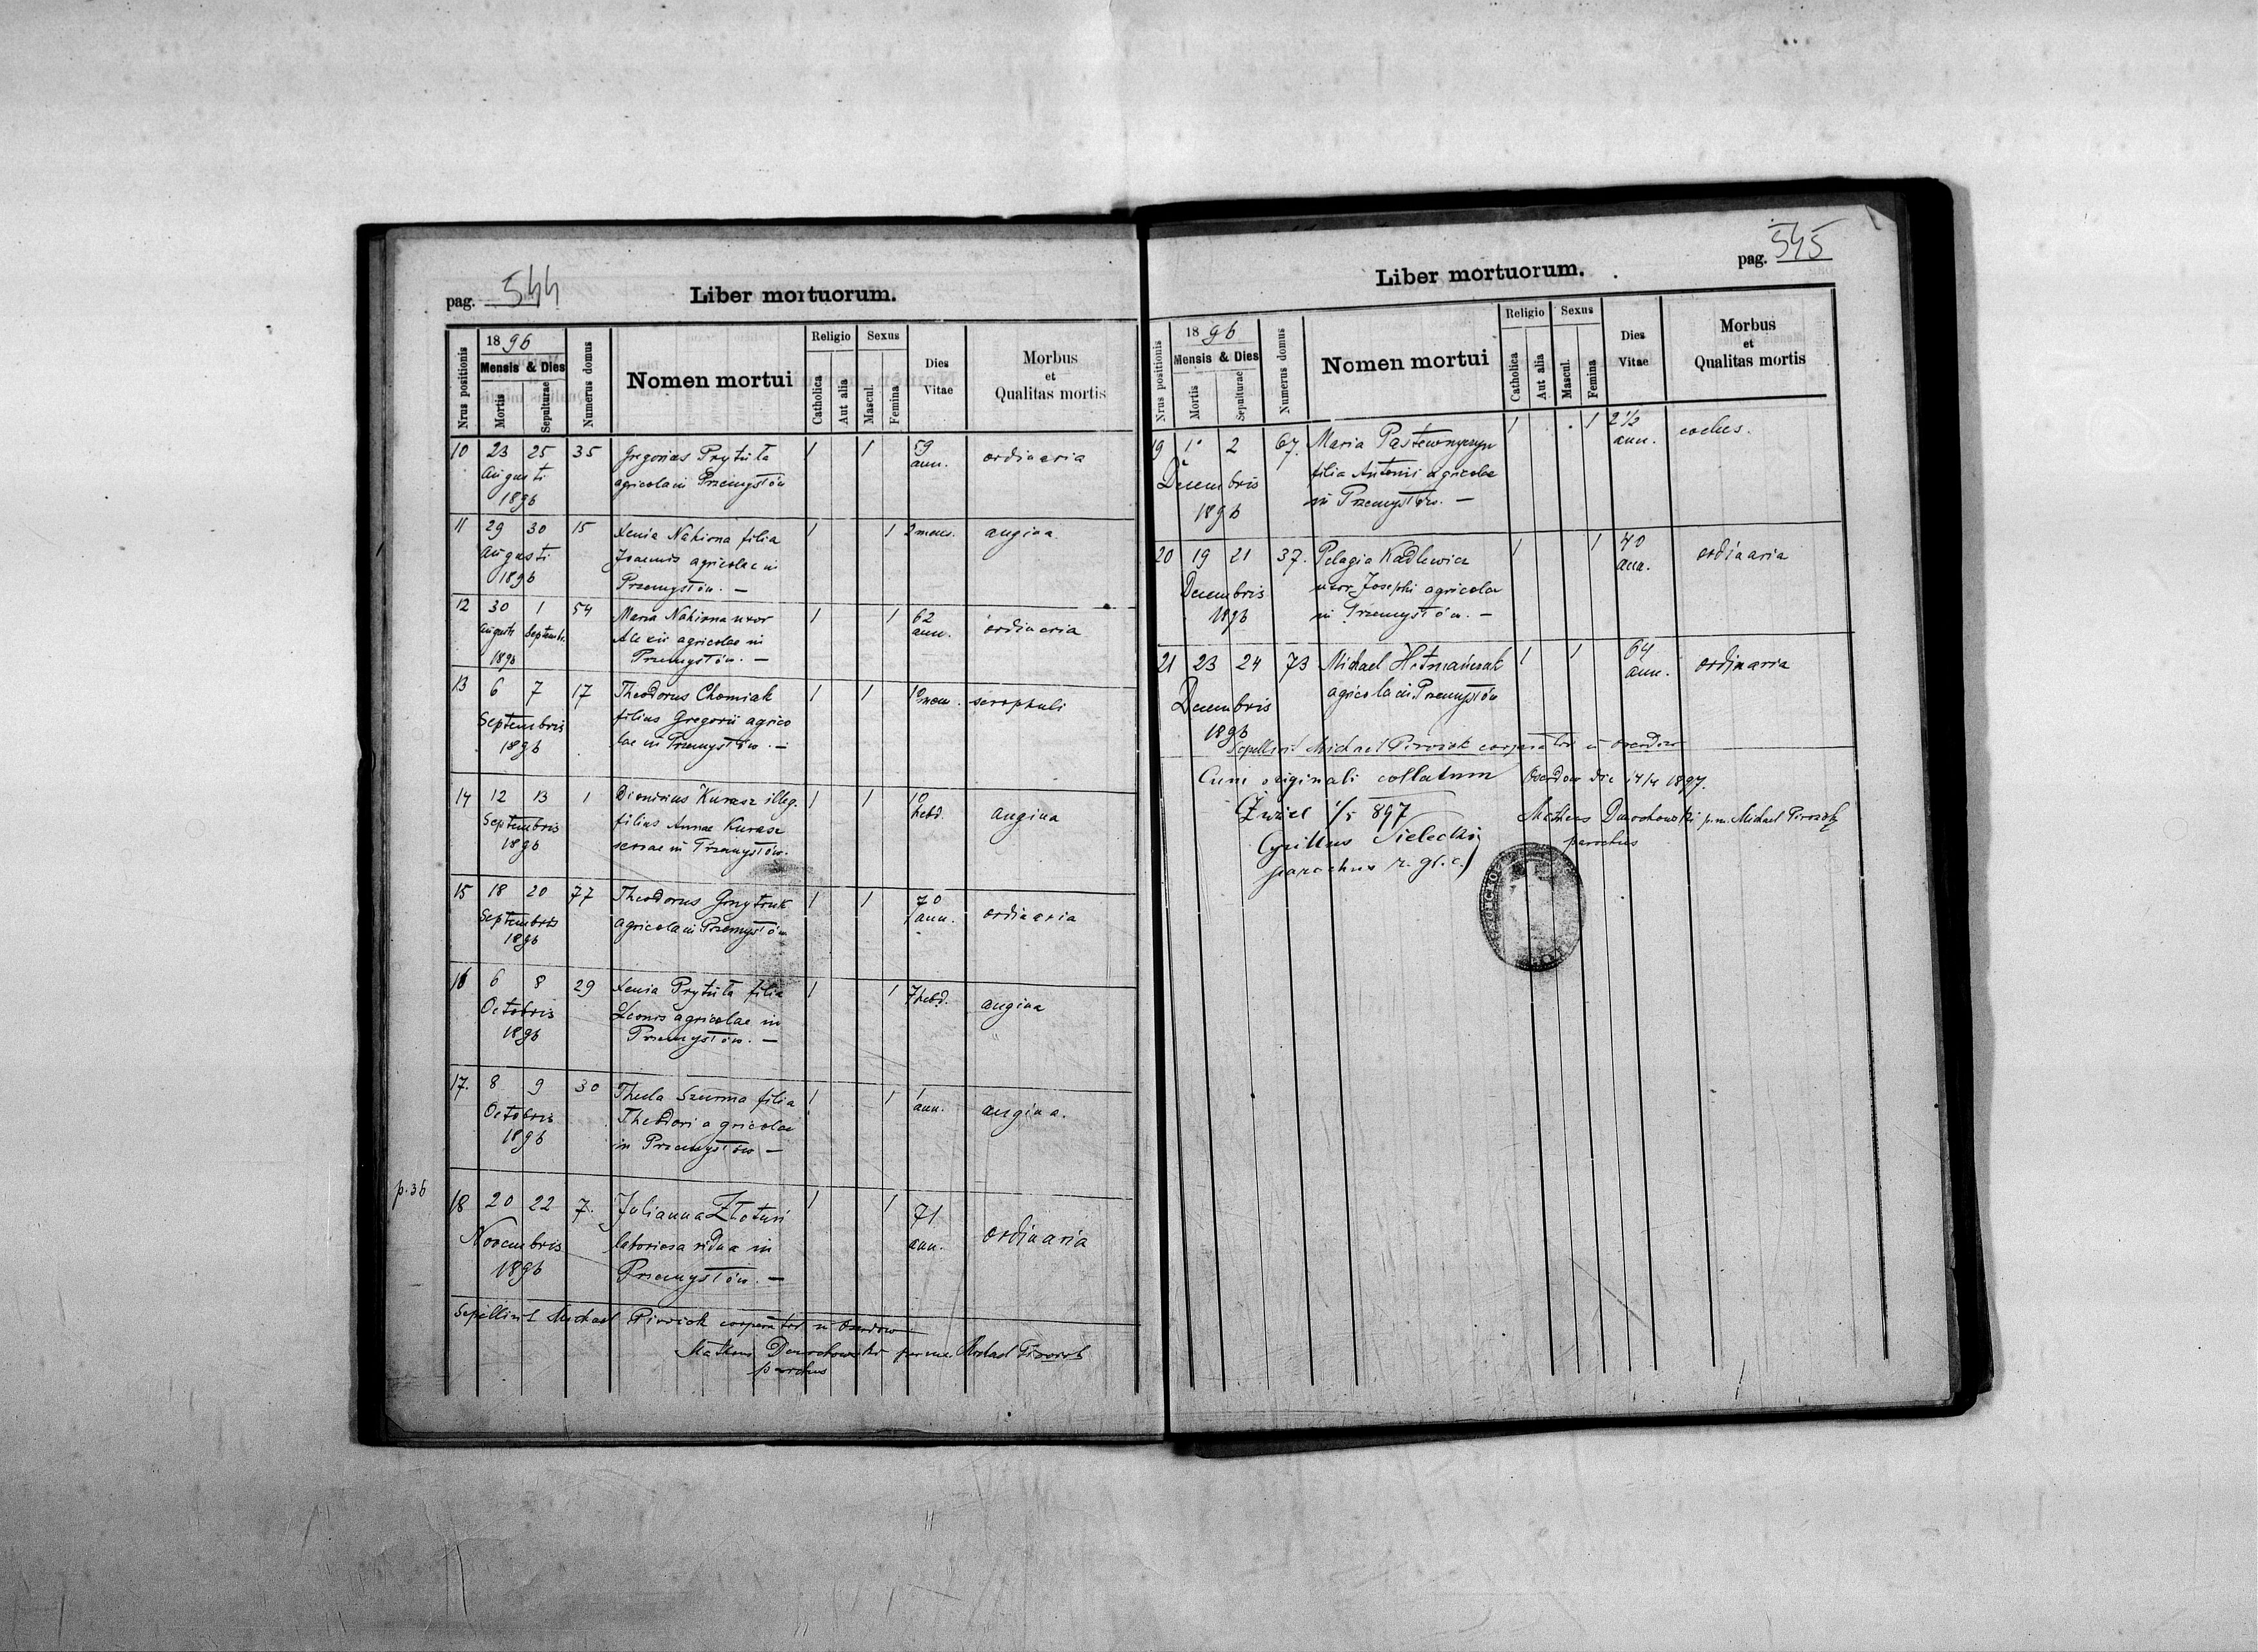 pag. 544
Liber mortuorum.
Nrus positionis
1896
Mensis & Dies
Mortis
Sepulturae
Numerus domus
Nomen mortui
Religio
Catholica
Aut alia
Sexus
Mascul.
Femina
Dies
Vitae
Morbus
et
Qualitas mortis
10 23 25 35 Gregorius Prytuła 1 1 59 ordinaria
Augusti agricola in Przemysłów ann.
1896
11 29 30 15 Xenia Nahirna filia 1 1 2 mens. angina
Augusti Joannis agricolae in
1896 Przemysłów. —
12 30 1 54 Maria Nahirna uxor 1 1 62 ordinaria
Augusti Septembr. Alexii agricolae in ann.
1896 Przemysłów. —
13 6 7 17 Theodorus Chomiak 1 1 10 scrophuli
Septembris filius Gregorii agrico mens.
1896 lae in Przemysłów. —
14 12 13 1 Dionisius Kurasz illeg. 1 1 10 angina
Septembris filius Annae Kurasz hebd.
1896 in Przemysłów.
15 18 20 77 Theodorus Gmytruk 1 1 70 ordinaria
Septembris agricola in Przemysłów ann.
1896
16 6 8 29 Xenia Prytuła filia 1 1 7 hebd. angina
Octobris Leonis agricolae in
1896 Przemysłów. —
17. 8 9 30 Thecla Szurma filia 1 1 1 angina.
Octobris Theodori agricolae ann.
1896 in Przemysłów —
p. 36
18 20 22 7. Julianna 1 1 71 ordinaria
Novembris laboriosa vidua in ann.
1896 Przemysłów. —
Sepelivit Michael cooperator in Oserdow
Matheus per me Michael
parochus
pag. 545
Liber mortuorum.
Nrus positionis
1896
Mensis & Dies
Mortis
Sepulturae
Numerus domus
Nomen mortui
Religio
Catholica
Aut alia
Sexus
Mascul.
Femina
Dies
Vitae
Morbus
et
Qualitas mortis
19 1 2 67. Maria 1 1 2 1/2
Decembris filia Antonii agricolae ann.
1896 in Przemysłów. —
20 19 21 37. Pelagia Kadlewicz 1 1 40 ordinaria
Decembris uxor Josephi agricolae ann.
1896 in Przemysłów. —
21 23 24 73 Michael Hetmańczuk 1 1 64 ordinaria
Decembris agricola in Przemysłów ann.
1896
Sepelivit Michael cooperator in Oserdow
Cum originali collatum Oserdow die 1897.
1/5 897 Matheus p. m. Michael
Cyrillus Sielecki parochus
parochus r. gr. c.